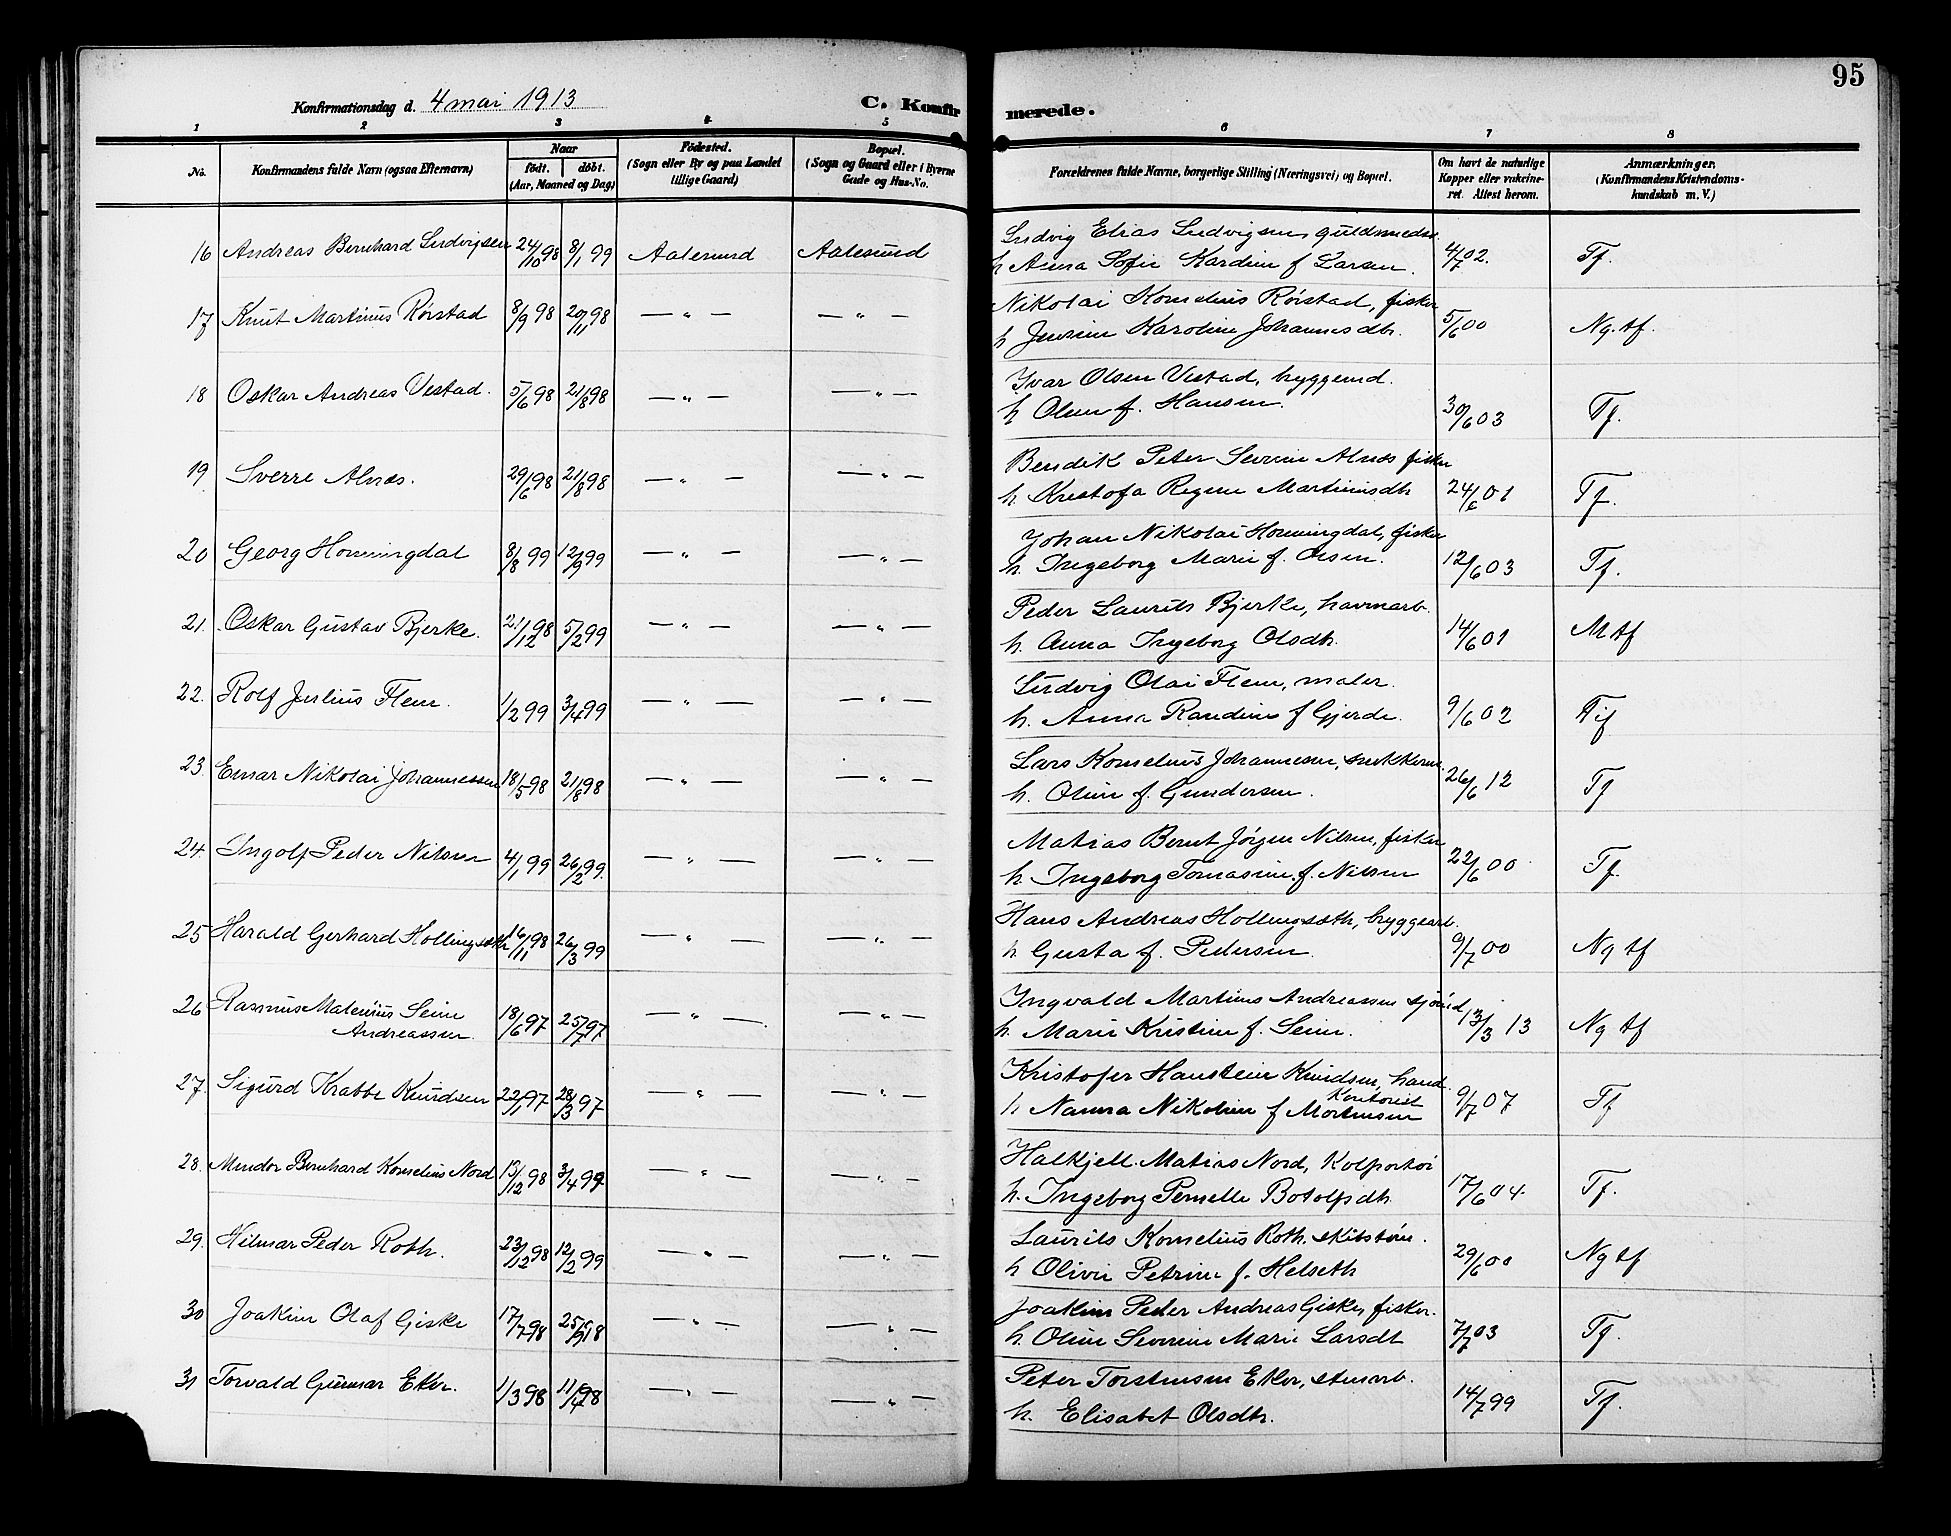 95
Konfirmationsdag d. 4 mai 1913
C. Konfirmerede.
1 2 3 4 5 6 7 8
No. Konfirmandens fulde Navn (ogsaa Efternavn) Naar födt. döbt. (Aar, Maaned og Dag) Födested. (Sogn eller By og paa Landet tillige Gaard) Bopæl. (Sogn og Gaard eller i Byerne Gade og Hus-No. Forældrenes fulde Navne, borgerlige Stilling (Næringsvei) og Bopæl. Om havt de naturlige Kopper eller vakcineret. Attest herom. Anmærkninger. (Konfirmandens Kristendomskundskab m. V.)
16 Andreas Bernhard Ludvigsen 24/10 98 8/1 99 Aalesund Aalesund Ludvig Elias Ludvigsen guldsmedsv.
h Anna Sofie Kardine f Larsen. 4/7 02. Tf.
17 Knut Martinus Rörstad 8/9 98 20/11 98 — " — — " — Nikolai Kornelius Rörstad, fisker
h Jensine Karoline Johannesdtr. 5/6 00 Ng. tf.
18 Oskar Andreas Vestad. 5/6 98 21/8 98 — " — — " — Ivar Olsen Vestad, byggemd.
h Oline f. Hansen. 30/6 03 Tf.
19 Sverre Alnæs. 29/6 98 21/8 98 — " — — " — Bendik Peter Severin Alnæs fisker
h. Kristofa Regine Martinusdtr 24/6 01 Tf.
20 Georg Honningdal 8/8 99 12/9 99 — " — — " — Johan Nikolai Honningdal, fisker
h. Ingeborg Marie f. Olsen. 12/6 03 Tf.
21. Oskar Gustav Bjerke. 21/12 98 5/2 99 — " — — " — Peder Laurits Bjerke, havnarb.
h. Anna Ingeborg Olsdtr. 14/6 01 M tf
22. Rolf Julius Flem. 1/2 99 3/4 99 — " — — " — Ludvig Olai Flem, maler.
h. Anna Randine f Gjerde. 9/6 02 Tf
23. Einar Nikolai Johannessen 18/5 98 21/8 98 — " — — " — Lars Kornelius Johannesen, snekkerm.
h. Oline f. Gundersen. 26/6 12 Tf
24. Ingolf Peder Nilsen 4/1 99 26/2 99. — " — — " — Matias Bernt Jörgen Nilsen, fisker
h. Ingeborg Tomasine f. Nilsen 22/6 00 Tf.
25 Harald Gerhard Hollingsæth 16/11 98 26/3 99 — " — — " — Hans Andreas Hollingsæth, bryggearb.
h. Gusta f. Pedersen 9/7 00 Ng tf
26 Rasmus Matenius Seim
Andreassen. 18/6 97 25/7 97 — " — — " — Ingvald Martinus Andreassen
h. Marie Kristine f. Seim. 13/3 13 Ng tf
27. Sigurd Krabbe Knudsen 22/1 97 28/3 97 — " — — " — Kristofer Hanstein Knudsen, hand.
kontorist
h Nanna Nikoline f Mortensen 9/7 07 Tf
28. Mindor Bernhard Kornelius Nord 13/12 98 3/4 99 — " — — " — Halkjell Matias Nord, Kolportör
h. Ingeborg Pernelle Botolfsdtr 17/6 04. Tf.
29. Hilmar Peder Roth. 23/12 98 12/2 99 — " — — " — Laurits Kornelius Roth. skibstöm.
h Olivie Petrine f. Helseth 29/6 00 Ng tf
30 Joakim Olaf Giske 17/7 98 25/9 98 — " — — " — Joakim Peder Andreas Giske, fisker.
h. Oline Severine Marie Larsdt 7/7 03 Tf.
31 Torvald Gunnar Eker. 1/3 98 11/4 98 — " — — " — Peter Torstensen Eker, stenarb.
h. Elisabet Olsdtr. 14/7 99 Tf.